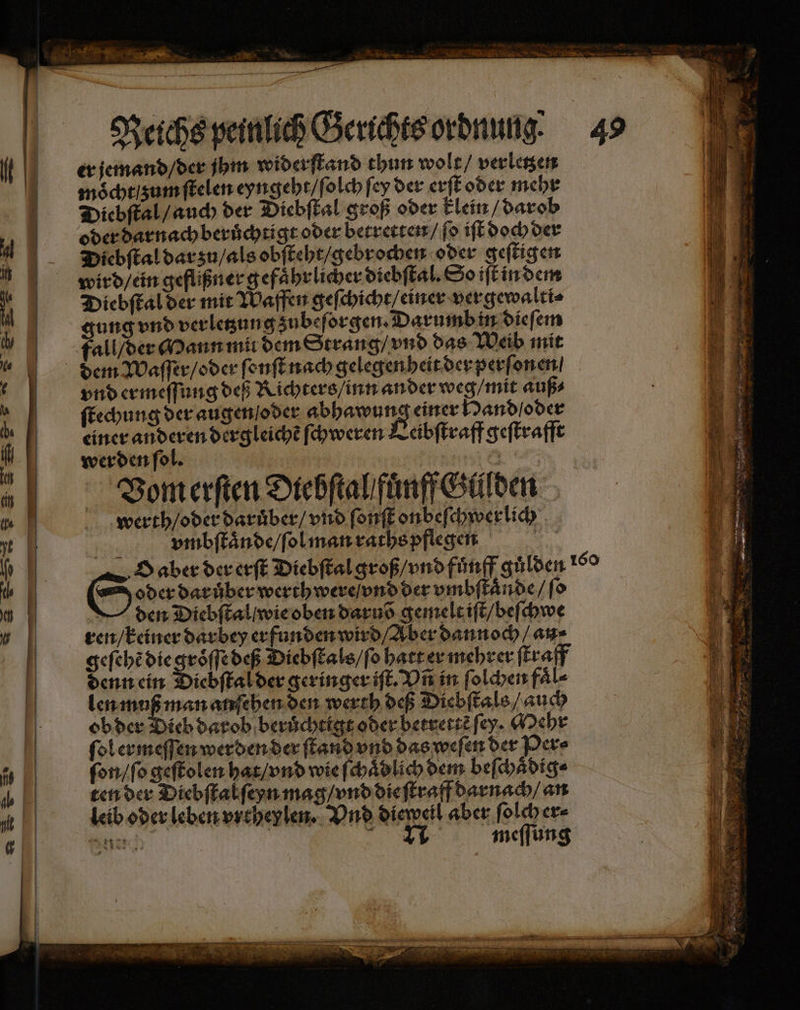 Reichs peinlich Gerichts ordnung. 49
er jemand/der jhm widerſtand thun wolt/ verletzen
moͤcht/zum ſtelen eyngeht/ſolch ſey der erſt oder mehr
Diebſtal/auch der Diebſtal groß oder klein/darob
oder darnach beruͤchtigt oder betretten/ ſo iſt doch der
Diebſtal dar zu/als obſteht/gebrochen oder geſtigen
wird/ein gefliſzner gefaͤhrlicher diebſtal. So iſt in dem
Diebſtal der mit Waffen geſchicht/einer vergewalti⸗
gung vnd verletzung zubeſorgen. Darumb in dieſem
fall/der Mann mit dem Strang/vnd das Weib mit
dem Waſſer/oder ſonſt nach gelegenheit der perſonen/
vnd ermeſſung deß Richters/inn ander weg/mit auß⸗
ſtechung der augen/oder abhawung einer Hand/oder
einer anderen dergleichẽ ſchweren Leibſtraff geſtrafft
werden ſol.
Vom erſten Diebſtal fuͤnff Guͤlden
werth/oder daruͤber/vnd ſonſt onbeſchwerlich
vmbſtaͤnde/ſol man raths pflegen
SO aber der erſt Diebſtal groß/vnd fuͤnff guͤlden 160
oder daruͤber werth were/vnd der vmbſtaͤnde/ ſo
den Diebſtal/wie oben daruõ gemelt iſt/beſchwe
ren/keiner darbey erfunden wird/Aber dannoch/ an⸗
geſehẽ die groͤſſe deß Diebſtals/ſo hatt er mehrer ſtraff
denn ein Diebſtal der geringer iſt. Vñ in ſolchen faͤl⸗
len muß man anſehen den werth deß Diebſtals/auch
ob der Dieb darob beruͤchtigt oder betrettẽ ſey. Mehr
ſol ermeſſen werden der ſtand vnd das weſen der Per⸗
ſon/ſo geſtolen hat/vnd wie ſchaͤdlich dem beſchaͤdig⸗
ten der Diebſtal ſeyn mag/vnd die ſtraff darnach/an
leib oder leben vrtheylen. Vnd dieweil aber ſolch er⸗
N meſſung